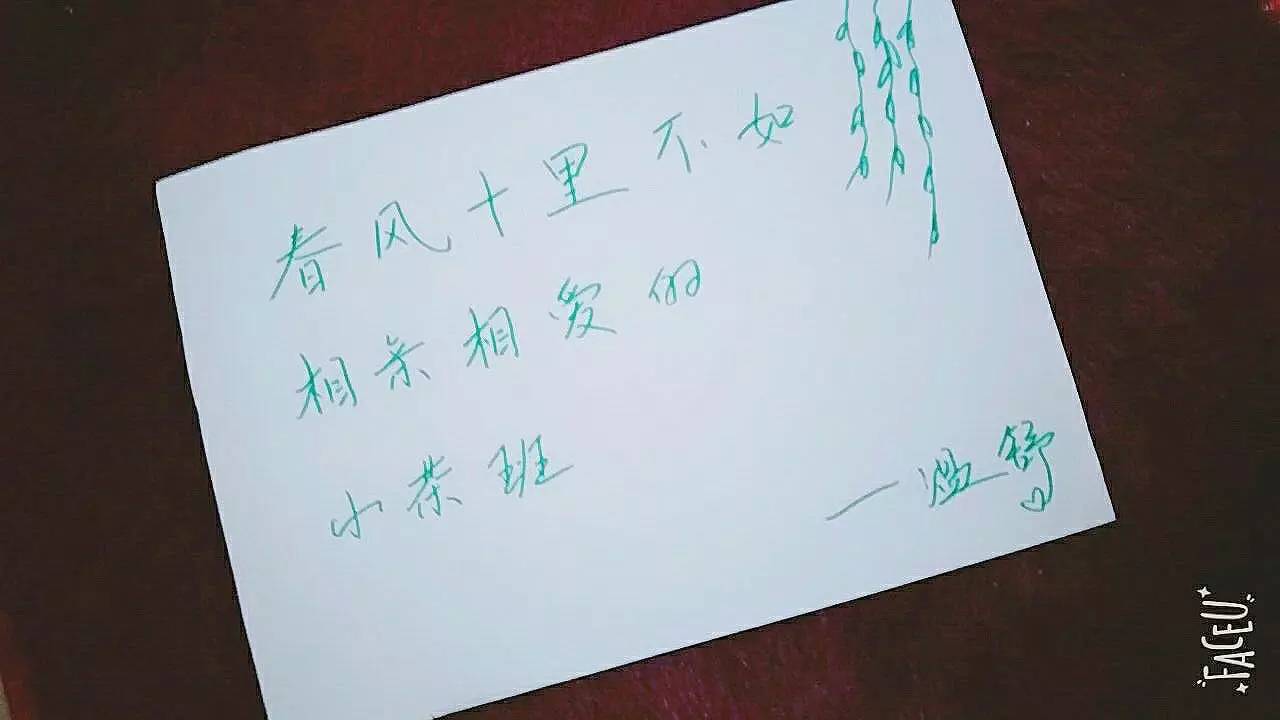 春风十里不如
相亲相爱的
小茶班
—温舒
FACEU